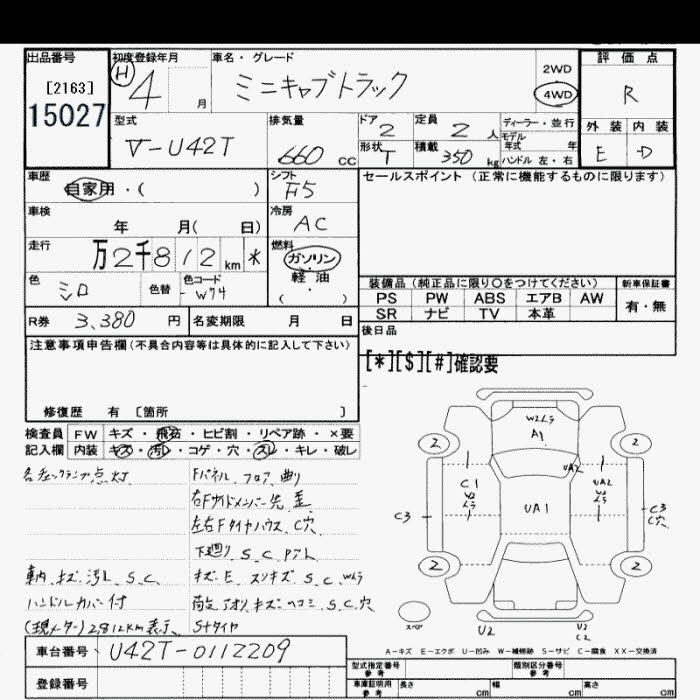 出品番号
[2163]
15027
初度登録年月
H 4 月
車名・グレード
ミニキャブトラック
2WD
4WD
評価点
R
外装 内装
E D
型式
V-U42T
排気量
660 cc
ドア 2
形状 T
定員 2 人
積載 350 kg
ディーラー・並行
モデル年式 年
ハンドル 左・右
車歴
自家用・( )
シフト
F5
セールスポイント(正常に機能するものに限ります)
車検
年 月( 日)
冷房
AC
走行
万2千812km*
燃料
ガソリン・
軽油
( )
色
シロ
色替
色コード
W74
装備品(純正品に限り○をつけてください)
新車保証書
PS PW ABS エアB AW
SR ナビ TV 本革
有・無
R券 3,380 円
名変期限 月 日
後日品
注意事項申告欄(不具合内容等は具体的に記入して下さい)
[*][$][#]確認要
修復歴 有 [箇所 ]
検査員 FW キズ・飛石・ヒビ割・リペア跡・×要
記入欄 内装 キズ・汚レ・コゲ・穴・スレ・キレ・破レ
各チェックランプ点灯
Fパネル、フロア曲り
右Fサイドメンバー先歪
左右Fタイヤハウス、C穴
下廻り S、C
車内、キズ、汚れ、S、C
キズ、E、スリキズ、S、C、Wムラ
ハンドルカバー付
荷台、アオリ、キズ、ヘコミ、S、C、穴
(現メーター)2812km表示
Sタイヤ
W2ムラ
A1
2 2
UA2
C1
W2
ムラ
UA2
W2
ムラ
C3
UA1
C3
C穴
2 2
スペア
U2
U2
C2
A-キズ E-エクボ U-凹み W-補修跡 S-サビ C-腐食 XX-交換済
車台番号 U42T-0112209
登録番号
型式指定番号
参考
類別区分番号
参考
車庫証明用
参考
長さ cm 幅 cm 高さ cm